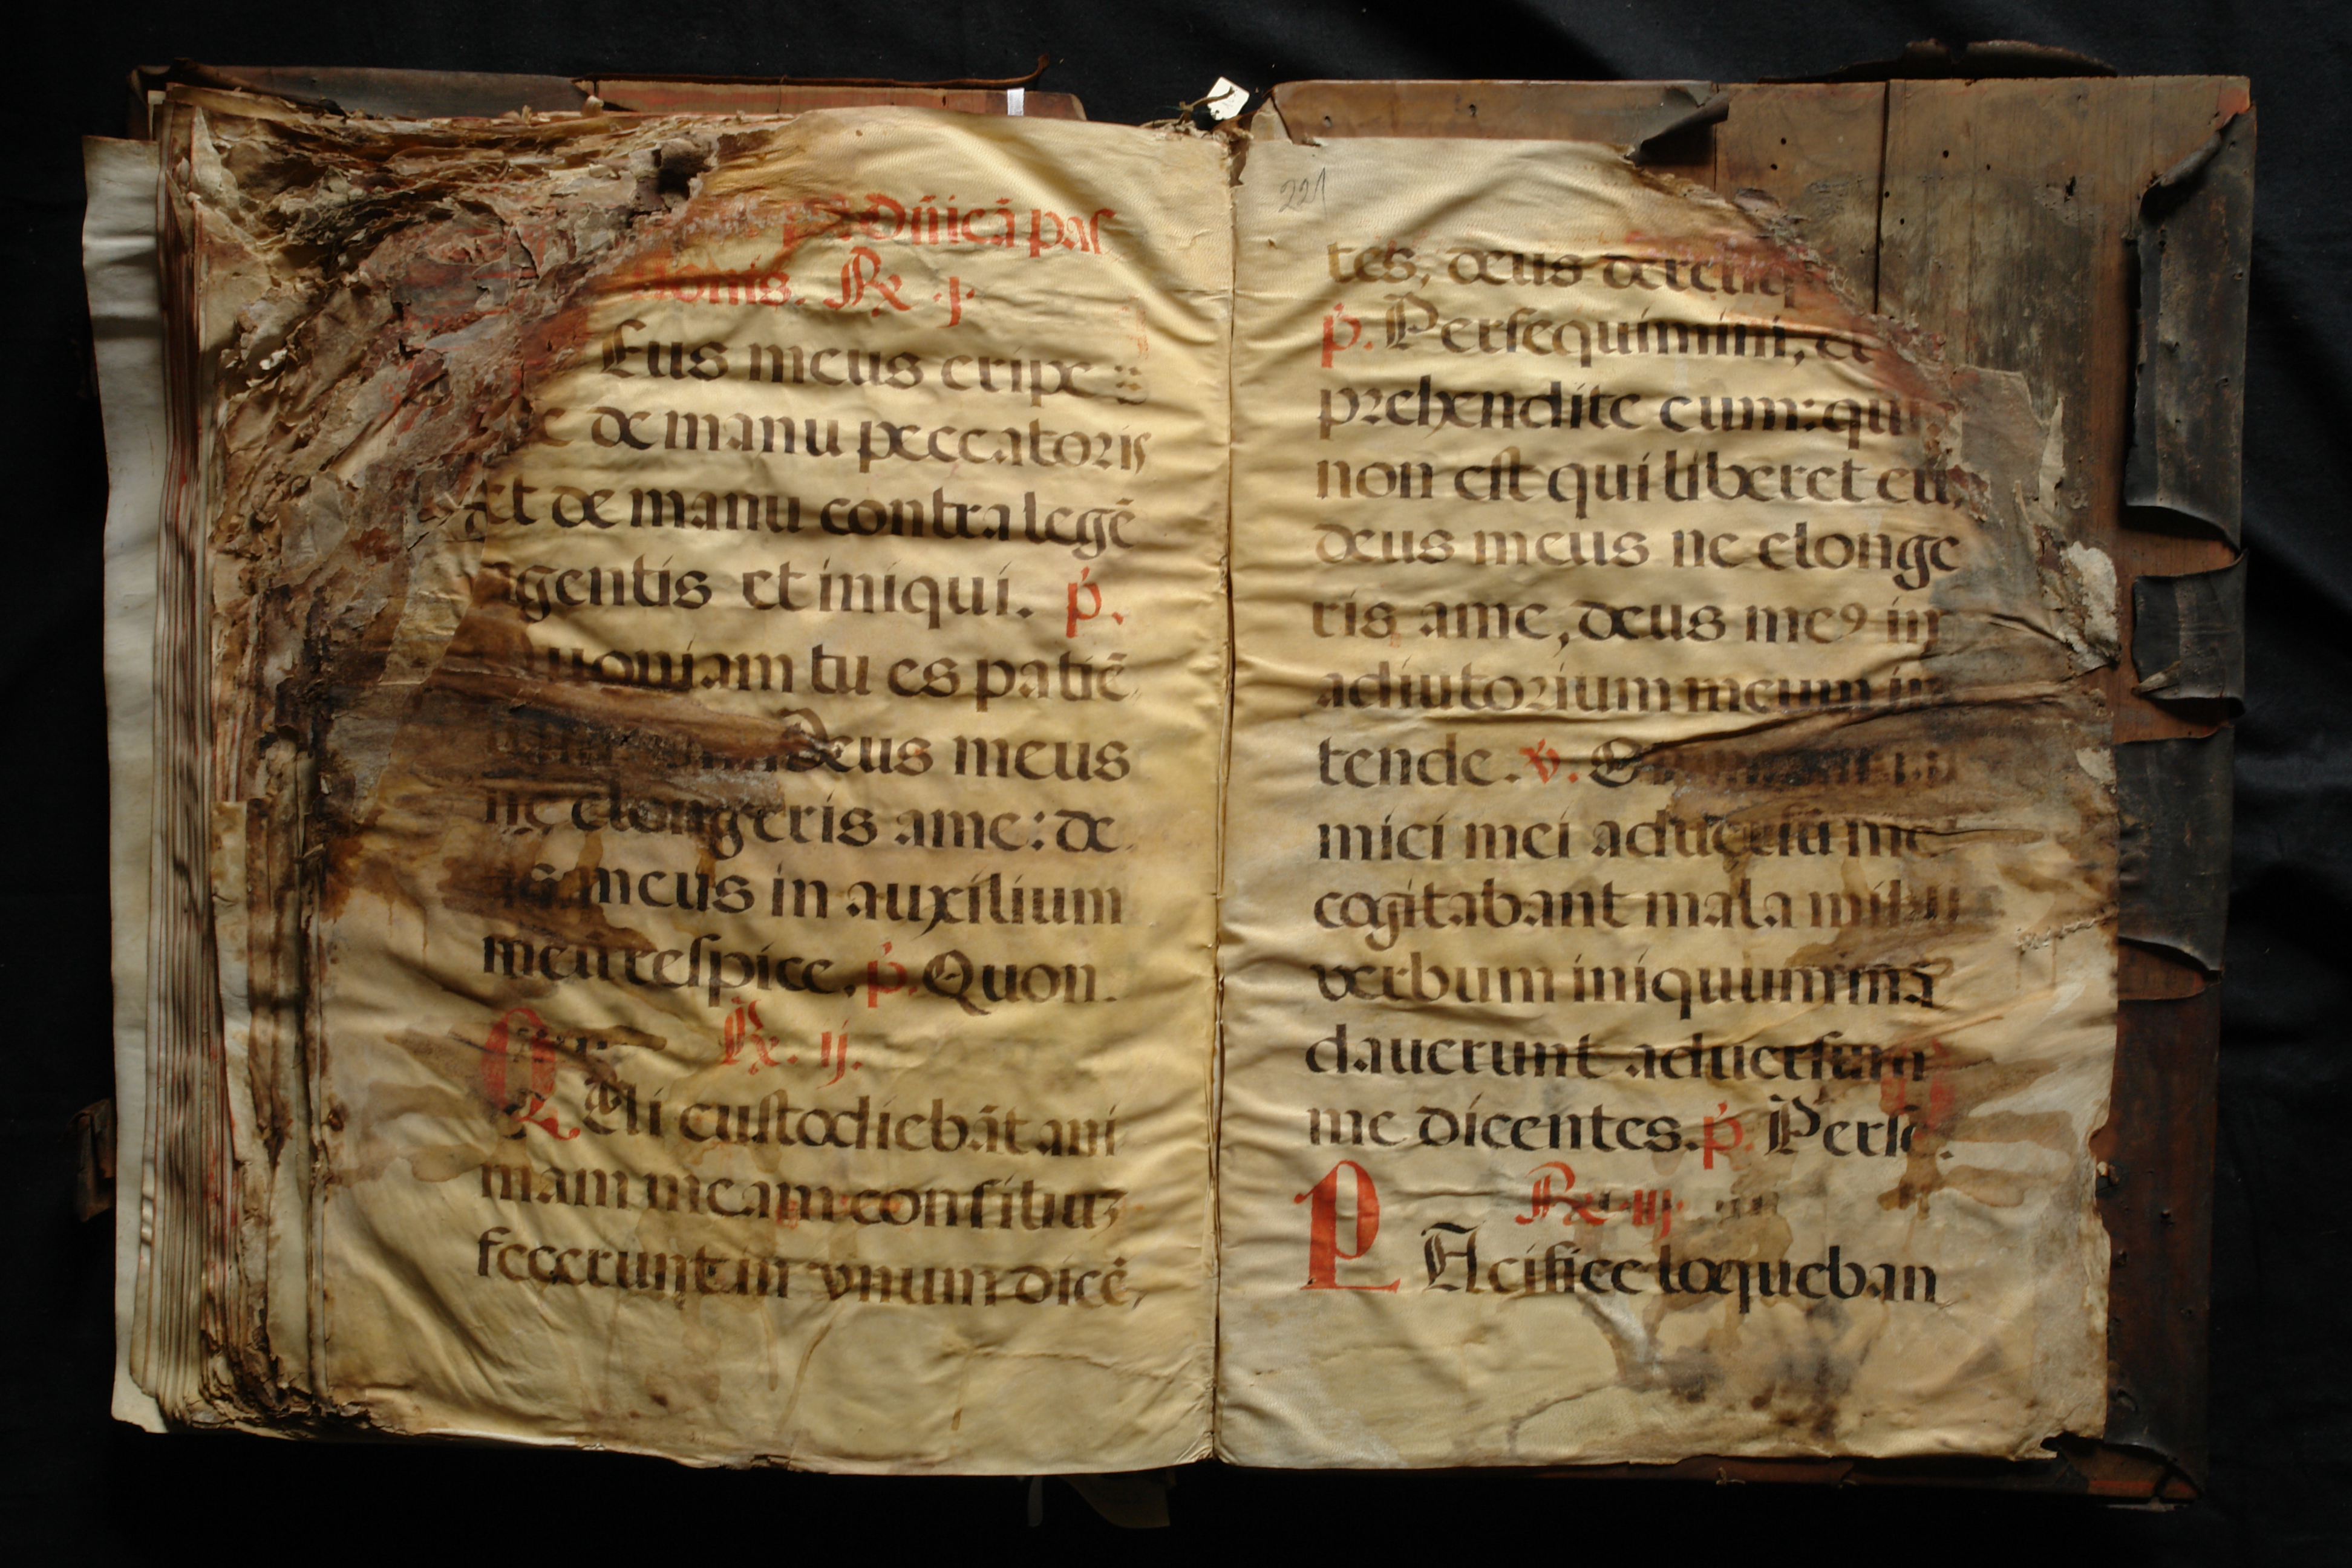 dñicã pas
ionis. ℟ .j.
Eus meus eripe
e de manu peccatoris
et de manu contra legẽ
agentis et iniqui. p̃.
Quoniam tu es patiẽ
Deus meus
ne elongeris ame: de
us meus in auxilium
meũ respice. p̃. Quon.
℟. ij.
Q Vi custodiebãt ani
mam meam consiliuʒ
fecerunt in vnum dicẽ,
221
tes, deus dereliq
p̃. Persequimini, et
prehendite eum: qui
non est qui liberet eũ,
deus meus ne elonge
ris ame, deus meꝰ in
adiutorium meum in
tende. ℣.
mici mei aduersũ me
cogitabant mala mihi
verbum iniquum mã
dauerunt aduersum
me dicentes. p̃. Perse.
℟. iij.
P Acifice loqueban